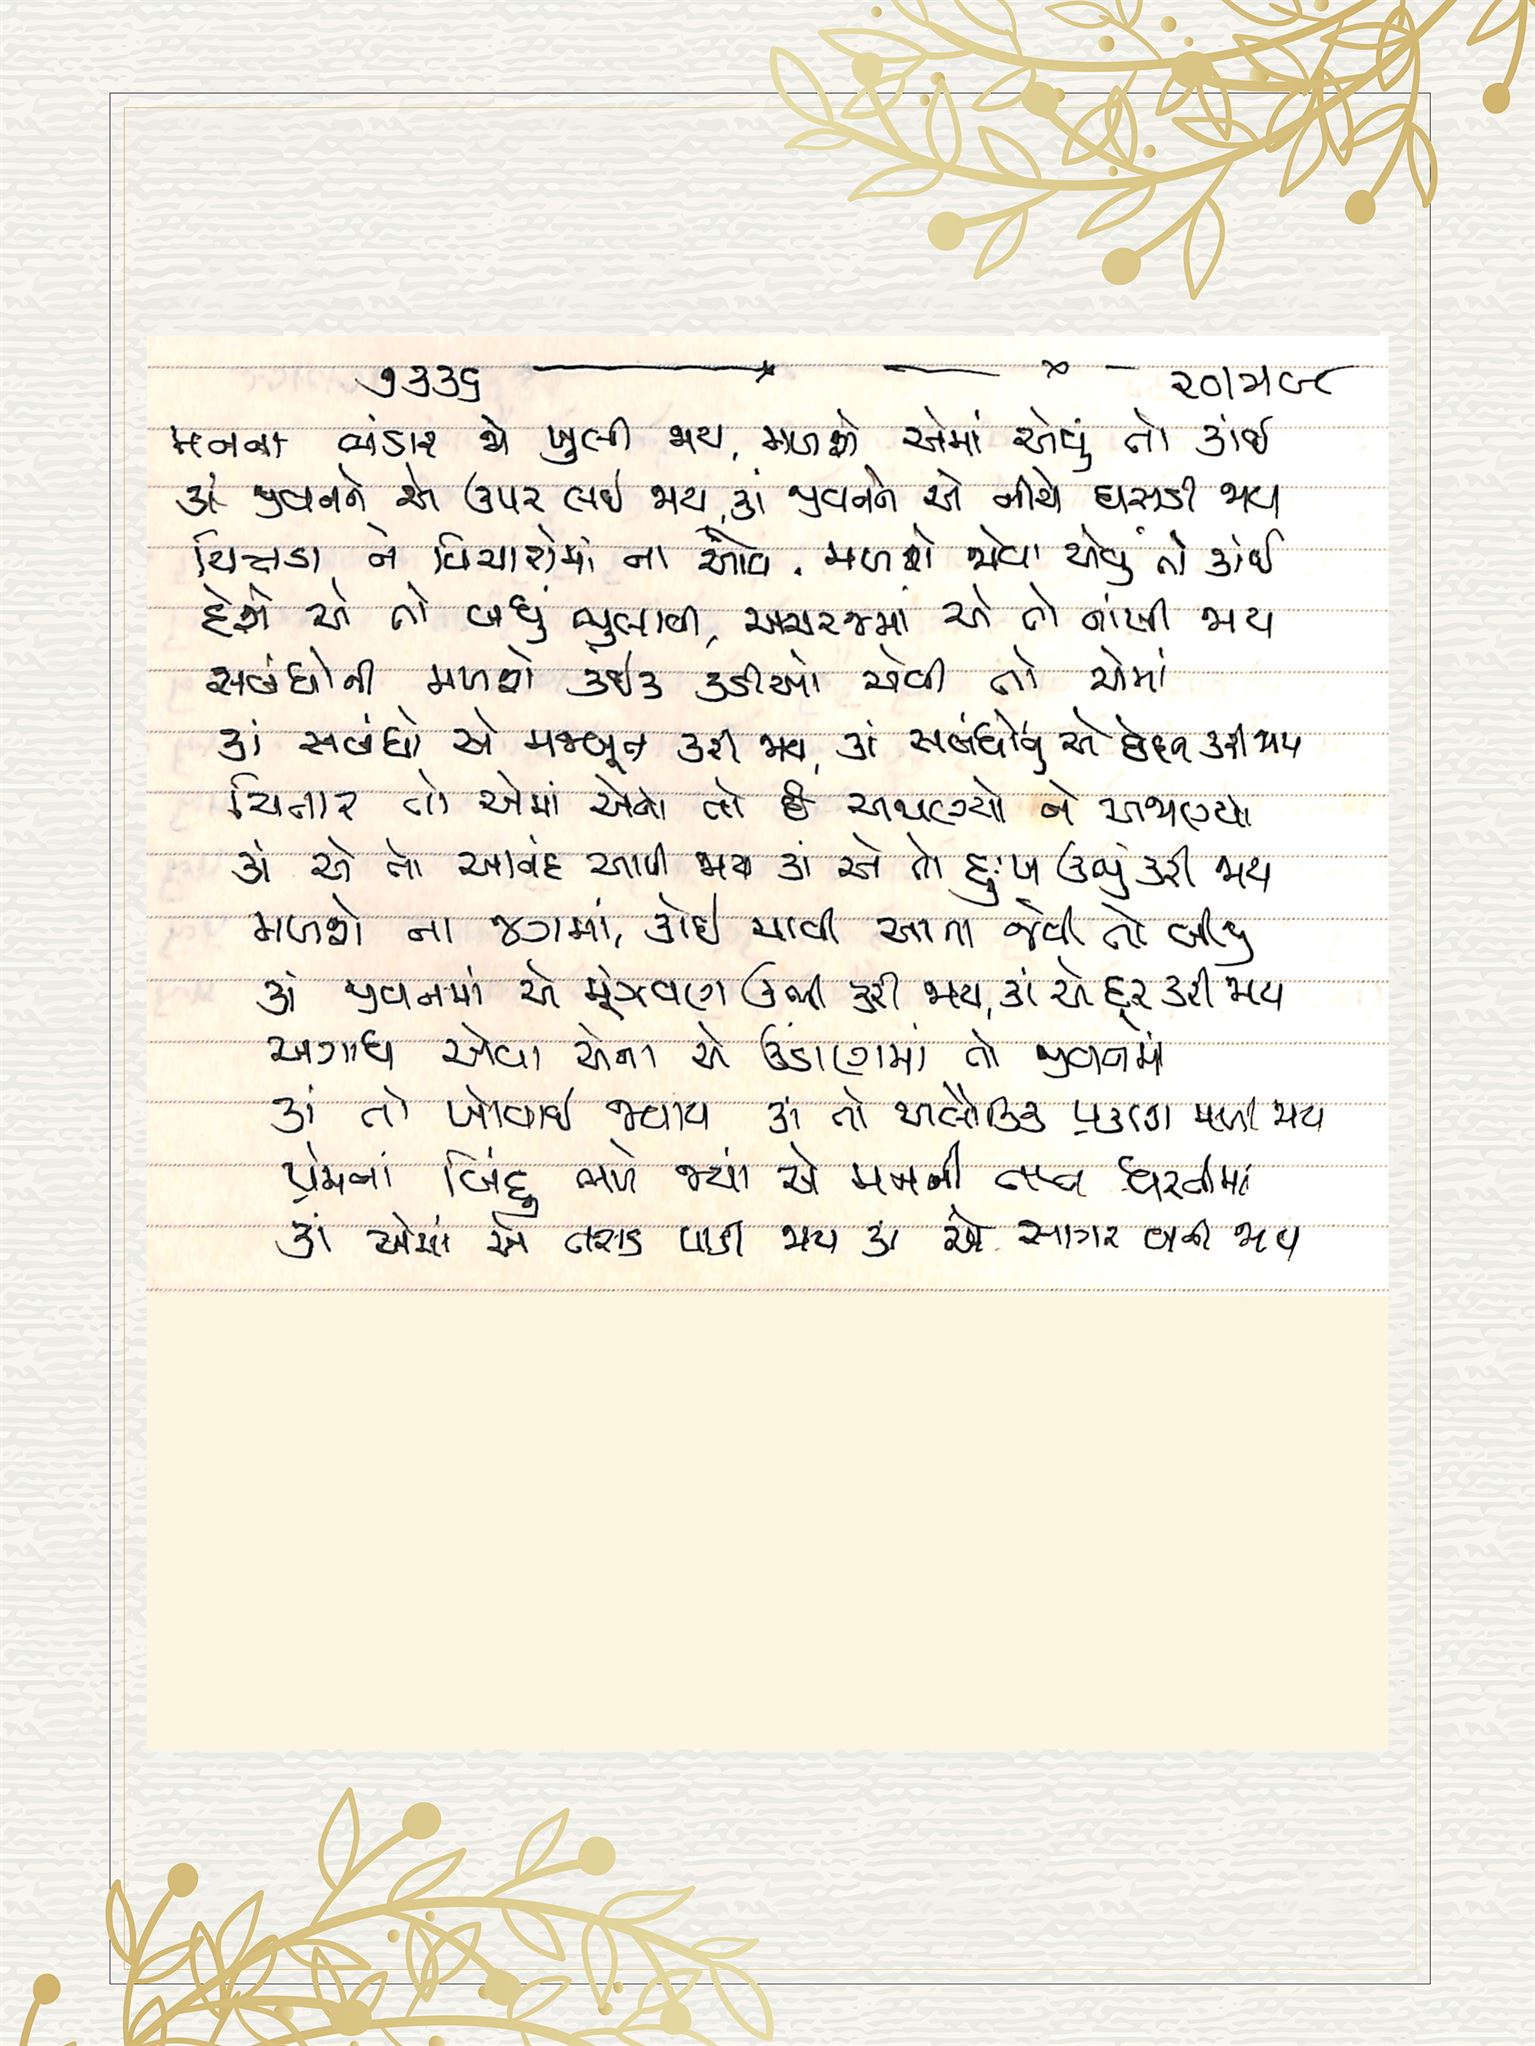 ૭૩૩૬ ૨૦/૫/૯૮
મનના ભંડાર જો ખુલી જાય, મળશે એમાં એવું તો કાંઈ
કાં જીવનને એ ઉપર લઈ જાય, કાં જીવનને એ નીચે ઘસડી જાય
ચિત્તડા ને વિચારોમાં ના આવે. મળશે એવા એવું તો કાંઈ
દેશે એ તો બધું ભુલાવી, અચરજમાં એ તો નાંખી જાય
સબંધોની મળશે કંઈક કડીઓ એવી તો એમાં
કાં સબંધો એ મજબૂત કરી જાય, કાં સબંધોનું એ છેદન કરી જાય
ચિતાર તો એમાં એનો તો છે અજાણ્યો ને અજાણ્યો
કાં એ તો આનંદ આપી જાય કાં એ તો દુઃખ ઉભું કરી જાય
મળશે ના જગમાં, કોઈ ચાવી આના જેવી તો બીજી
કાં જીવનમાં એ મૂંઝવણ ઉભી કરી જાય, કાં એ દૂર કરી જાય
અગાધ એવા એના એ ઉંડાણમાં તો જીવનમાં
કાં તો ખોવાઈ જવાય કાં તો અલૌકિક પ્રકાશ મળી જાય
પ્રેમનાં બિંદુ મળે જ્યાં એ મનની તપ્ત ધરતીમાં
કાં એમાં એ તરાડ પાડી જાય કાં એ સાગર બની જાય